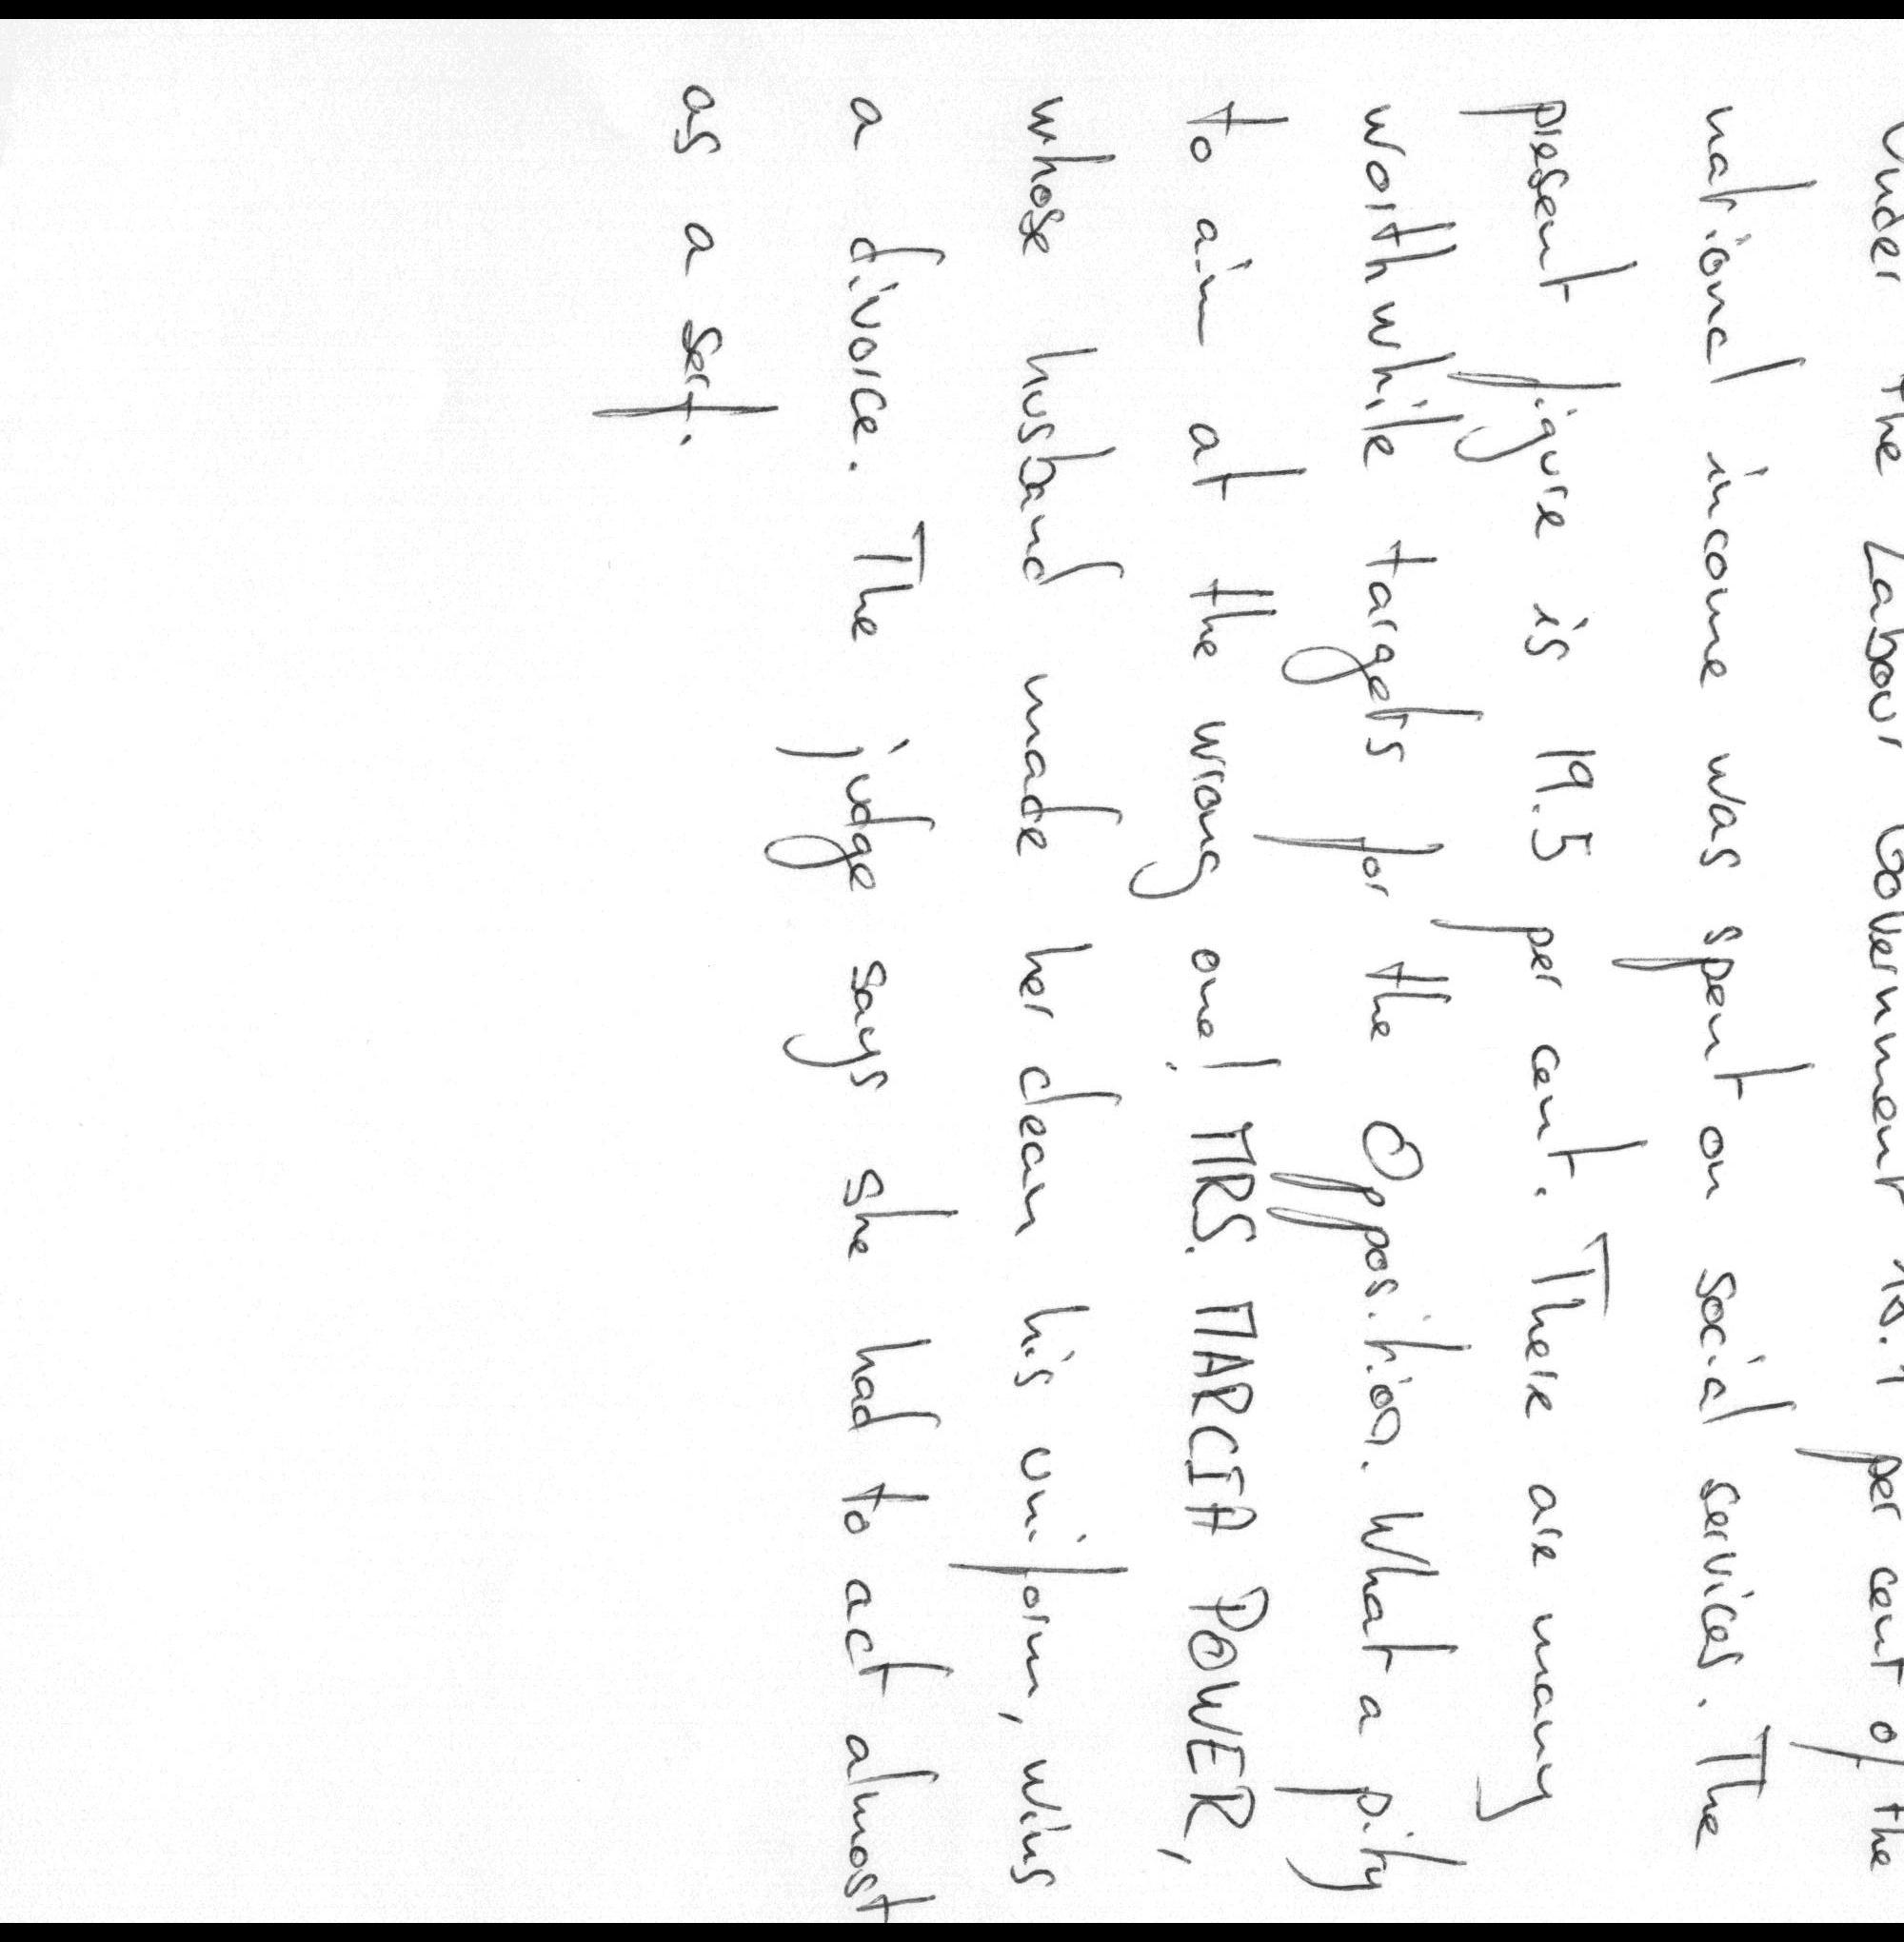 Under the Labour Government per cent of the
national income was spent on social services. The
present figure is 19.5 per cent. There are many
worthwhile targets for the Opposition. What a pity
to aim at the wrong one! MRS. MARCIA POWER,
whose husband made her clean his uniform, wins
a divorce. The judge says she had to act almost
as a serf.